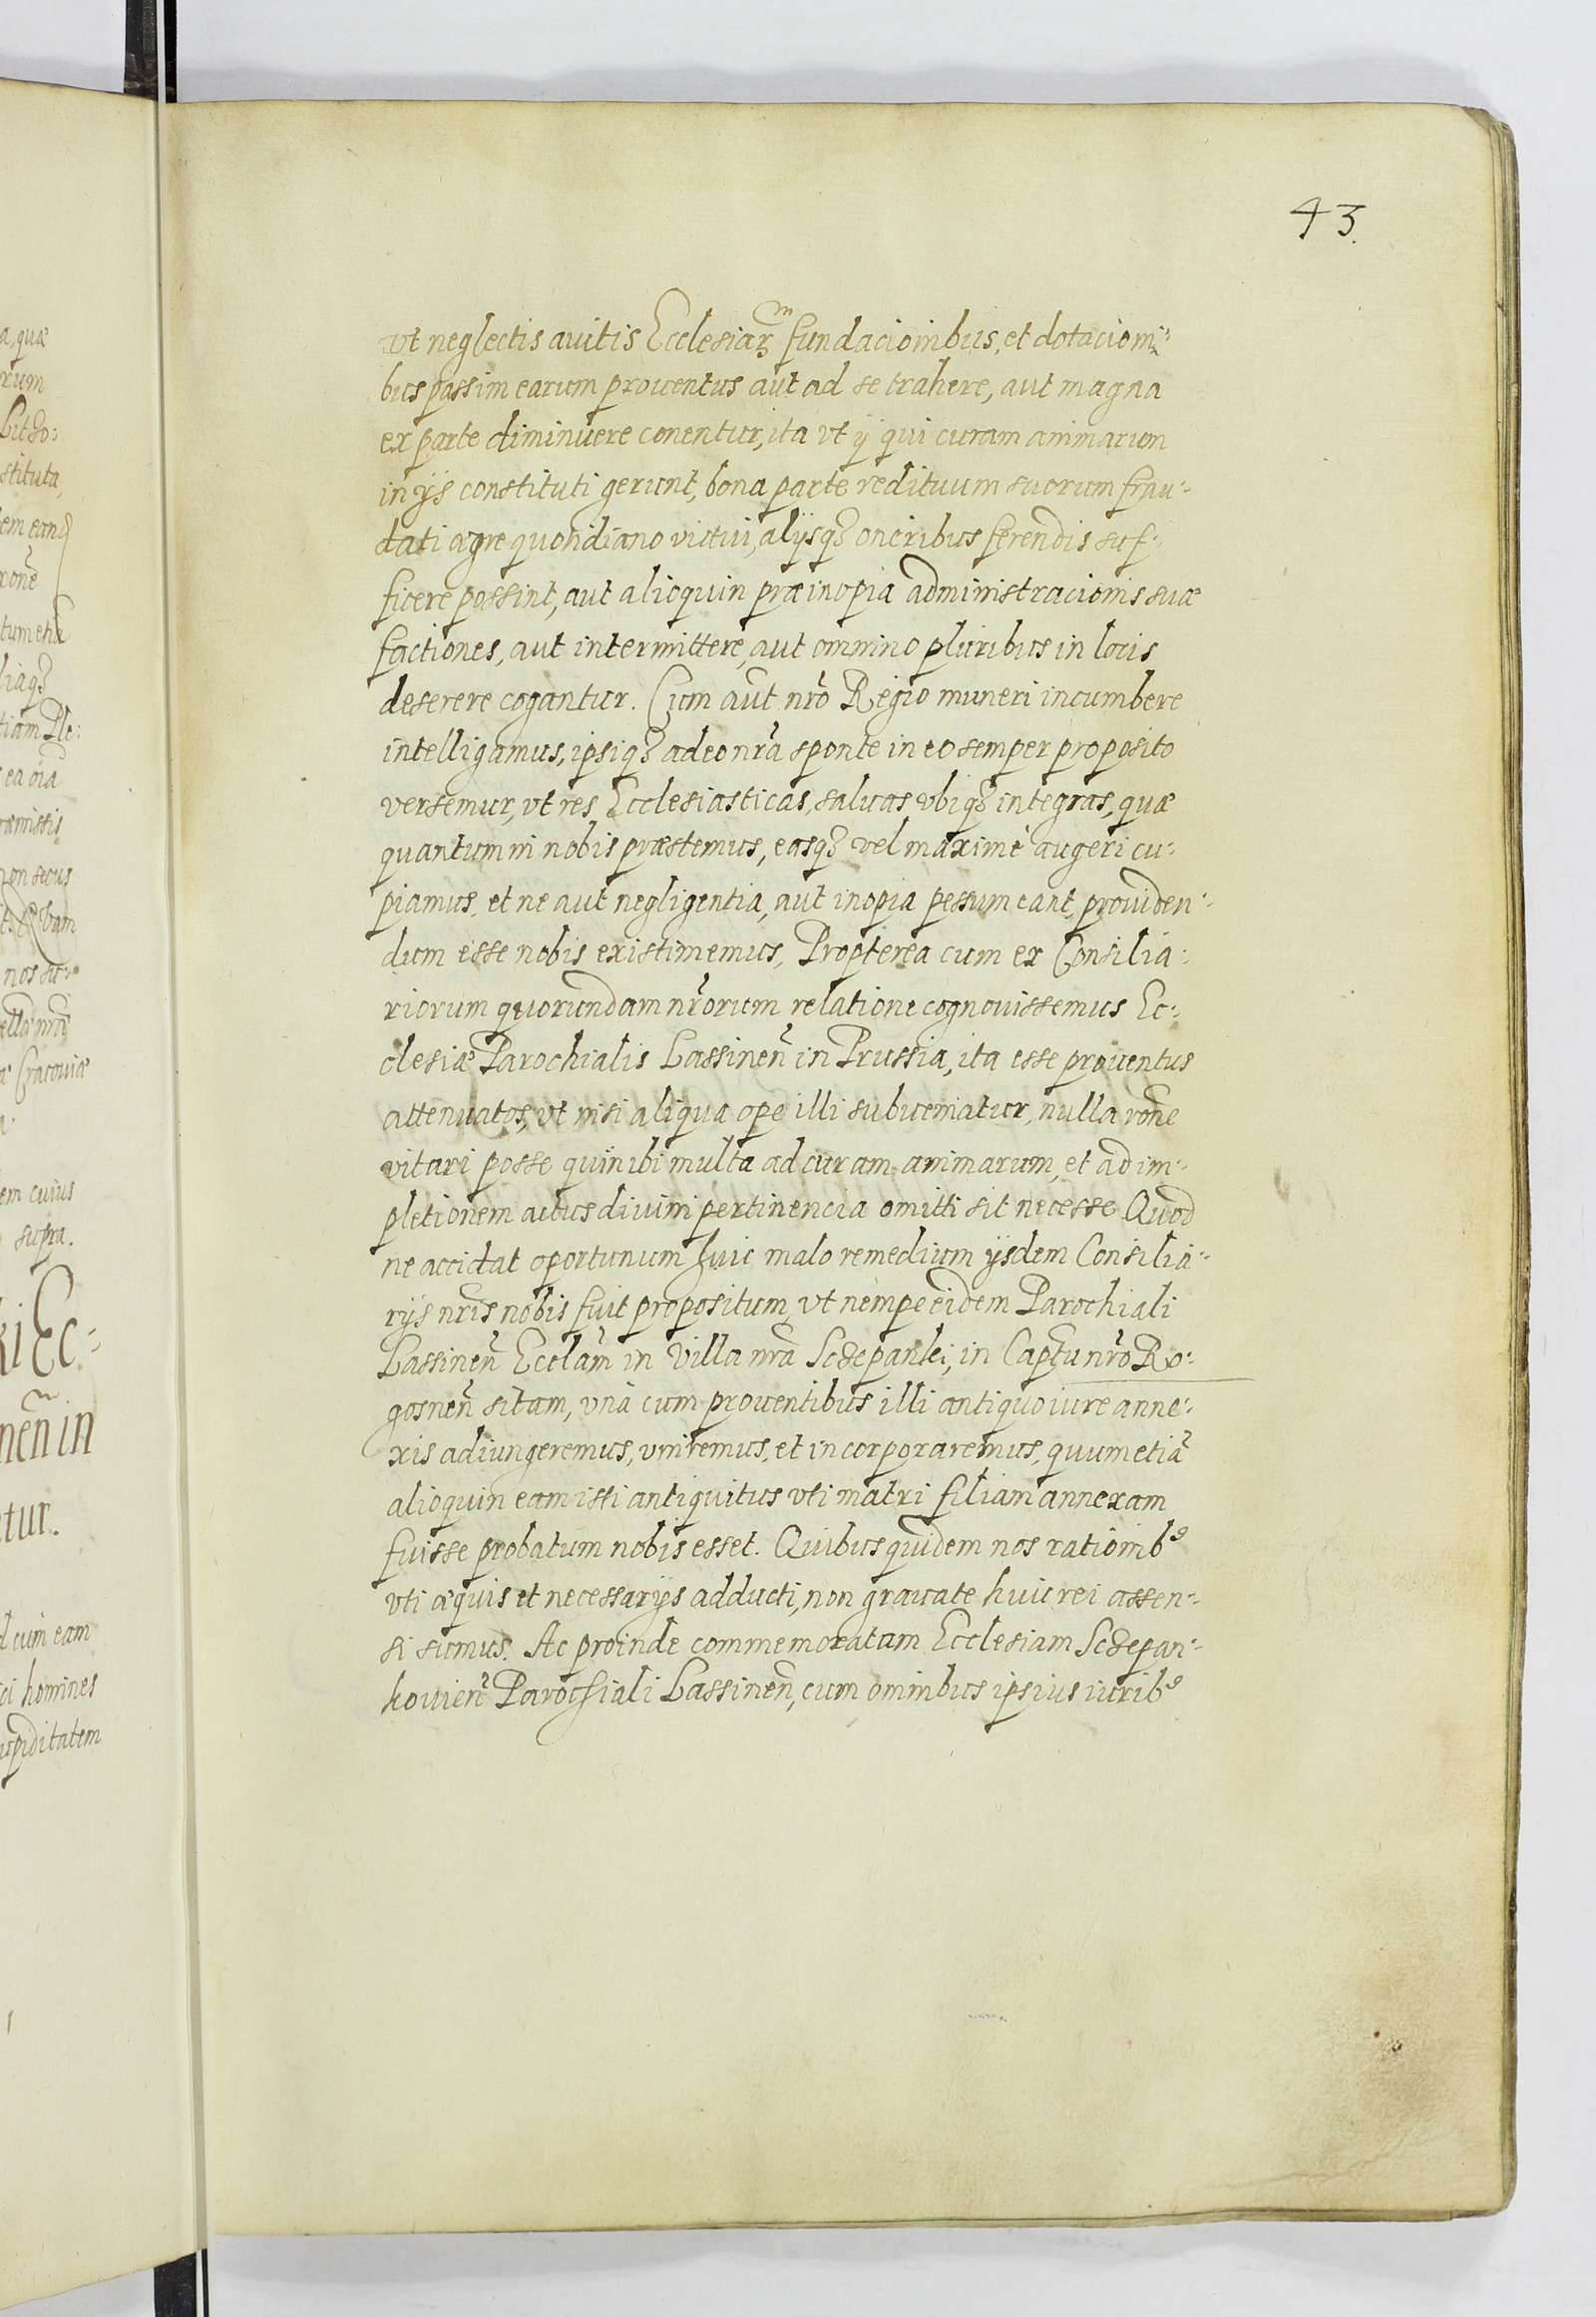 43.
vt neglectis auitis Ecclesiar̃ fundacionibus, et dotacioni:
bus passim earum prouentus aut ad se trahere, aut magna
ex parte diminuere conentur, ita vt ij qui curam animarum
in ijs constituti gerunt, bona parte redituum suorum frau:
dati ægre quotidiano victui, alijsq₃ oneribus ferendis suf:
ficere possint, aut alioquin præ inopia administracionis suæ
factiones, aut intermittere, aut omnino pluribus in locis
deserere cogantur. Cum aut̃ nr̃o Regio muneri incumbere
intelligamus, ipsiq₃ adeo nr̃a sponte in eo semper proposito
versemur, vt res Ecclesiasticas, saluas vbiq₃ integras, quæ
quantum in nobis præstemus, easq₃ vel maximè augeri cu:
piamus, et ne aut negligentia, aut inopia pessum eant, prouiden:
dum esse nobis existimemus, Propterea cum ex Consilia:
riorum quorundam nr̃orum relatione cognouissemus Ec:
clesiæ Parochialis Lassineñ in Prussia, ita esse prouentus
attenuatos, vt nisi aliqua ope illi subueniatur, nulla rõne
vitari posse quin ibi multa ad curam animarum, et ad im:
pletionem actus diuini pertinencia omitti sit necesse Quod
ne accidat oportunum huic malo remedium ijsdem Consilia:
rijs nr̃is nobis fuit propositum, vt nempe eidem Parochiali
Lassineñ Eccl̃am in Villa nr̃a Sczepanki, in Capt̃u nr̃o Ro:
gosneñ sitam, vnà cum prouentibus illi antiquo iure anne:
xis adiungeremus, vniremus, et incorporaremus, quum etiã
alioquin eam isti antiquitus vti matri filiam annexam
fuisse probatum nobis esset. Quibus quidem nos rationib⁹
vti æquis et necessarijs adducti, non grauate huic rei assen:
si sumus. Ac proinde commemoratam Ecclesiam Sczepan:
kouieñ Parochiali Lassineñ, cum omnibus ipsius iurib⁹